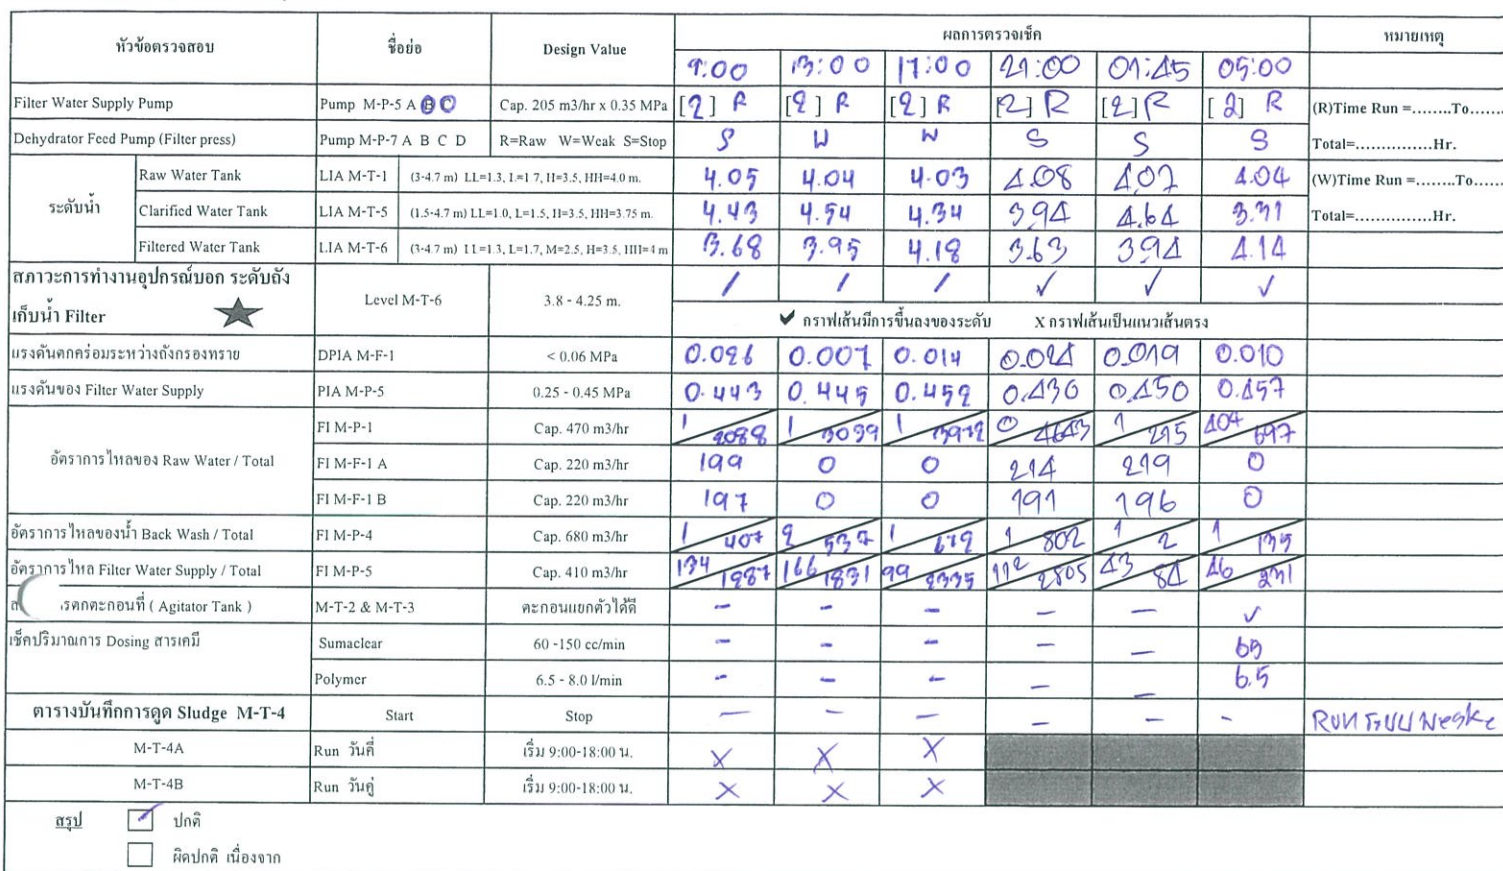 หัวข้อตรวจสอบ ชื่อย่อ Design Value ผลการตรวจเช็ค หมายเหตุ
9:00 13:00 17:00 21:00 01:45 05:00
Filter Water Supply Pump Pump M-P-5 A B C Cap. 205 m3/hr x 0.35 MPa [2] R [2] R [2] R [2] R [2] R [2] R (R)Time Run =........To......
Dehydrator Feed Pump (Filter press) Pump M-P-7 A B C D R=Raw W=Weak S=Stop S W W S S S Total=...............Hr.
ระดับน้ำ Raw Water Tank LIA M-T-1 (3-4.7 m) LL=1.3, L=1 7, H=3.5, HH=4.0 m. 4.05 4.04 4.03 4.08 4.07 4.04 (W)Time Run =........To......
Clarified Water Tank LIA M-T-5 (1.5-4.7 m) LL=1.0, L=1.5, H=3.5, HH=3.75 m. 4.43 4.54 4.34 3.94 4.64 3.31 Total=...............Hr.
Filtered Water Tank LIA M-T-6 (3-4.7 m) LL=1.3, L=1.7, M=2.5, H=3.5, HH=4 m 3.68 3.95 4.18 3.63 3.94 4.14
สภาวะการทำงานอุปกรณ์บอก ระดับถัง
เก็บน้ำ Filter Level M-T-6 3.8 - 4.25 m. / / / ✓ ✓ ✓
✓ กราฟเส้นมีการขึ้นลงของระดับ X กราฟเส้นเป็นแนวเส้นตรง
แรงดันตกคร่อมระหว่างถังกรองทราย DPIA M-F-1 < 0.06 MPa 0.026 0.007 0.014 0.024 0.019 0.010
แรงดันของ Filter Water Supply PIA M-P-5 0.25 - 0.45 MPa 0.443 0.445 0.452 0.436 0.450 0.457
อัตราการไหลของ Raw Water / Total FI M-P-1 Cap. 470 m3/hr 1/2088 1/3039 1/3972 0/4643 1/295 404/697
FI M-F-1 A Cap. 220 m3/hr 199 0 0 214 219 0
FI M-F-1 B Cap. 220 m3/hr 197 0 0 191 196 0
อัตราการไหลของน้ำ Back Wash / Total FI M-P-4 Cap. 680 m3/hr 1/407 2/537 1/672 1/802 1/2 1/135
อัตราการไหล Filter Water Supply / Total FI M-P-5 Cap. 410 m3/hr 134/1287 166/1831 99/2335 112/2805 43/84 46/231
รตกตะกอนที่ ( Agitator Tank ) M-T-2 & M-T-3 ตะกอนแยกตัวได้ดี - - - - - ✓
เช็คปริมาณการ Dosing สารเคมี Sumaclear 60 -150 cc/min - - - - - 65
Polymer 6.5 - 8.0 l/min - - - - - 6.5
ตารางบันทึกการดูด Sludge M-T-4 Start Stop - - - - - - Run ระบบ
M-T-4A Run วันคี่ เริ่ม 9:00-18:00 น. X X X
M-T-4B Run วันคู่ เริ่ม 9:00-18:00 น. X X X
สรุป ✓ ปกติ
ผิดปกติ เนื่องจาก